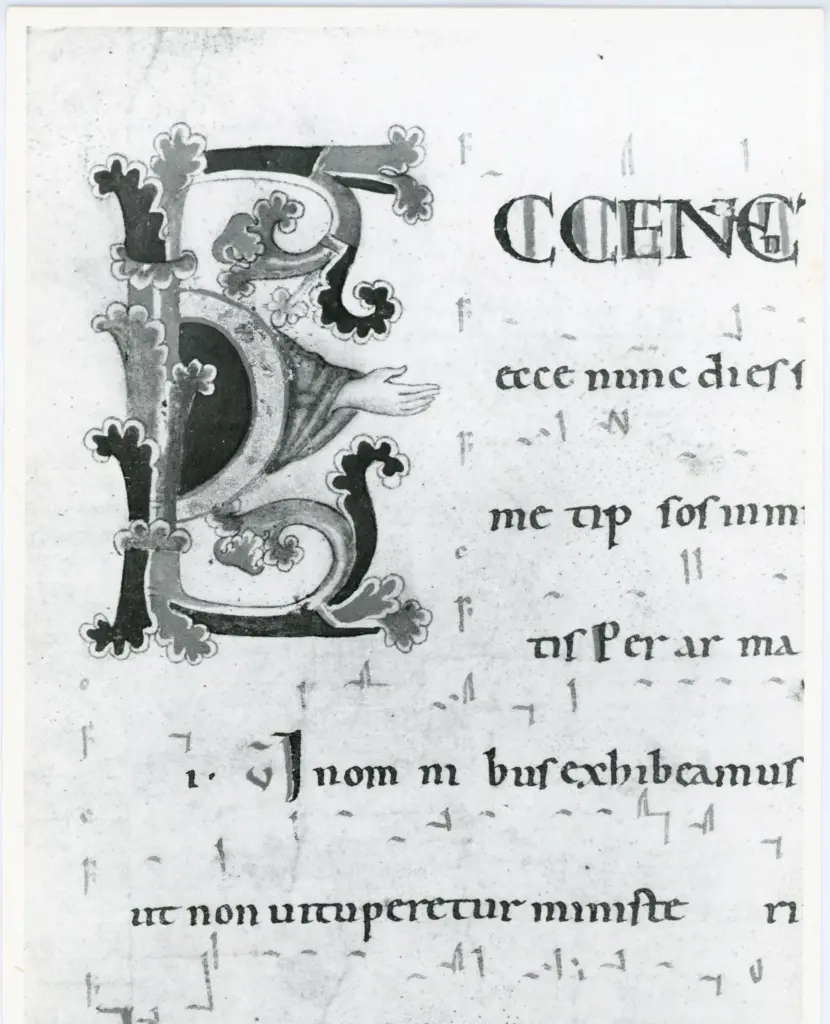 ECCE NC
ecce nunc dies t
me tip sos inm
tis Per ar ma
i. V In om ni bus exhibeamus
ut non vituperetur ministe ri